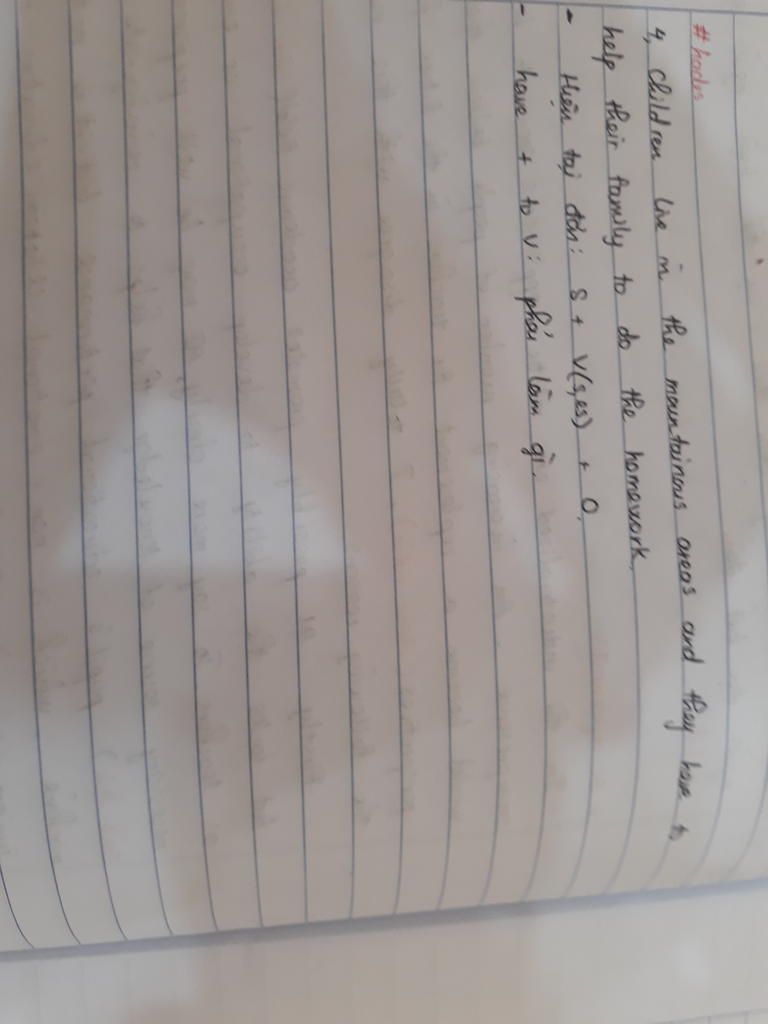 4, Children live in the mountainous areas and they have to
help their family to do the homework.
- Hiện tại đơn: S + V(s,es) + O.
- have + to V: phải làm gì.